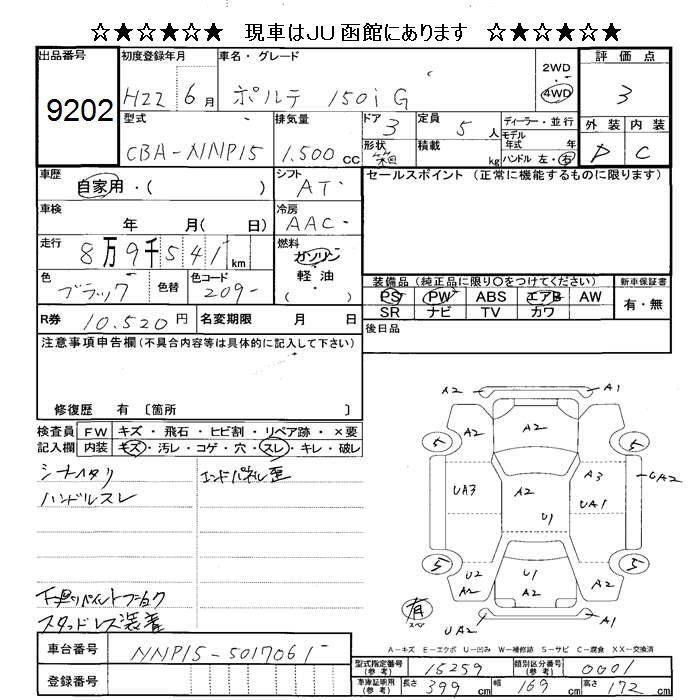 ☆★☆★☆★ 現車はJU函館にあります ☆★☆★☆★
出品番号 9202
初度登録年月 H22 6月
車名・グレード ポルテ 150i G
2WD 4WD
評価点 3
型式 CBA-NNP15
排気量 1.500 cc
ドア 3
定員 5 人
ディーラー・並行
形状 箱
積載 kg
モデル年式 年
ハンドル 左・右
外装 D 内装 C
車歴 自家用・( )
シフト AT
車検 年 月( 日)
冷房 AAC
走行 8万9千541 km
燃料 ガソリン 軽油 ( )
色 ブラック 色替
色コード 209
セールスポイント (正常に機能するものに限ります)
装備品 (純正品に限り〇をつけてください)
PS PW ABS エアB AW
SR ナビ TV カワ
新車保証書 有・無
R券 10.520円
名変期限 月 日
後日品
注意事項申告欄(不具合内容等は具体的に記入して下さい)
修復歴 有 〔箇所 〕
検査員記入欄
FW キズ・飛石・ヒビ割・リペア跡・×要
内装 キズ・汚レ・コゲ・穴・スレ・キレ・破レ
ハンドルスレ
エンドパネル歪
スタッドレス装着
A2 A1
A2 A2 A2
5 5
UA3 A2 A3 UA1 UA2
U1
5 5
U2 A2 U1 A2 A2
有 スペ
UA2 A1
A-キズ E-エクボ U-凹み W-補修跡 S-サビ C-腐食 XX-交換済
車台番号 NNP15-5017061
登録番号
型式指定番号(参考) 15259
類別区分番号(参考) 0001
車庫証明用(参考) 長さ 399 cm 幅 169 cm 高さ 172 cm